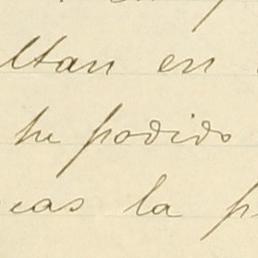 ltan en
he podido
eas la p